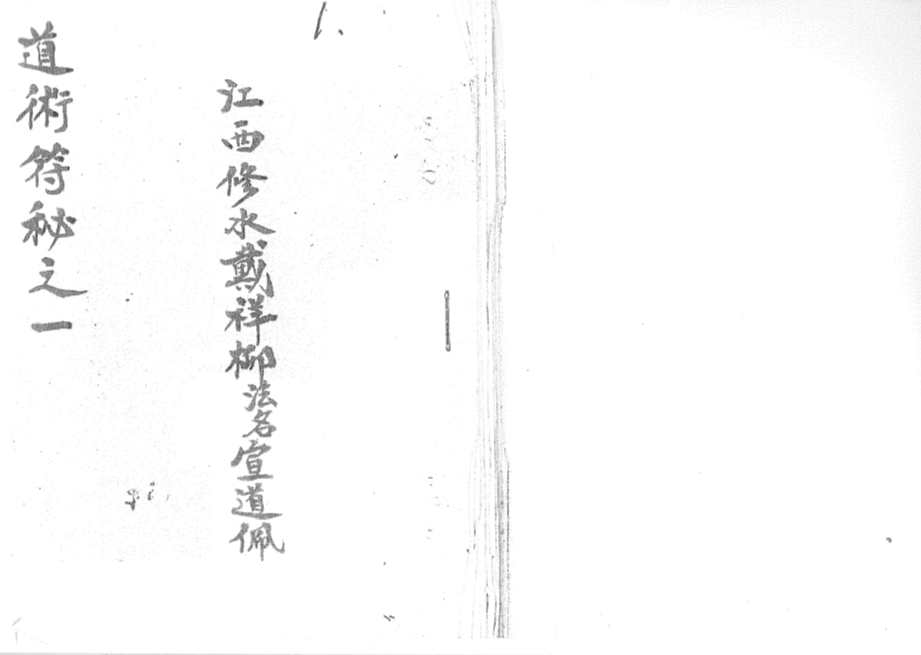 1.
江西修水戴祥柳法名宣道佩
道術符秘之一